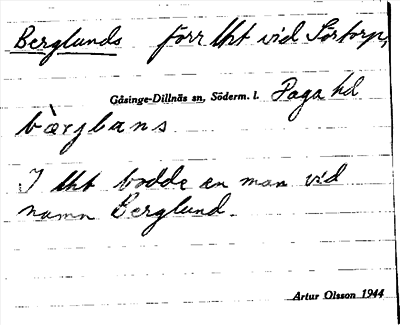 Berglunds förr lht vid Sörtorp,
Gåsinge-Dillnäs sn, Söderm. l. Daga hd
bàrglans
I lht bodde en man vid
namn Berglund.
Artur Olsson 1944